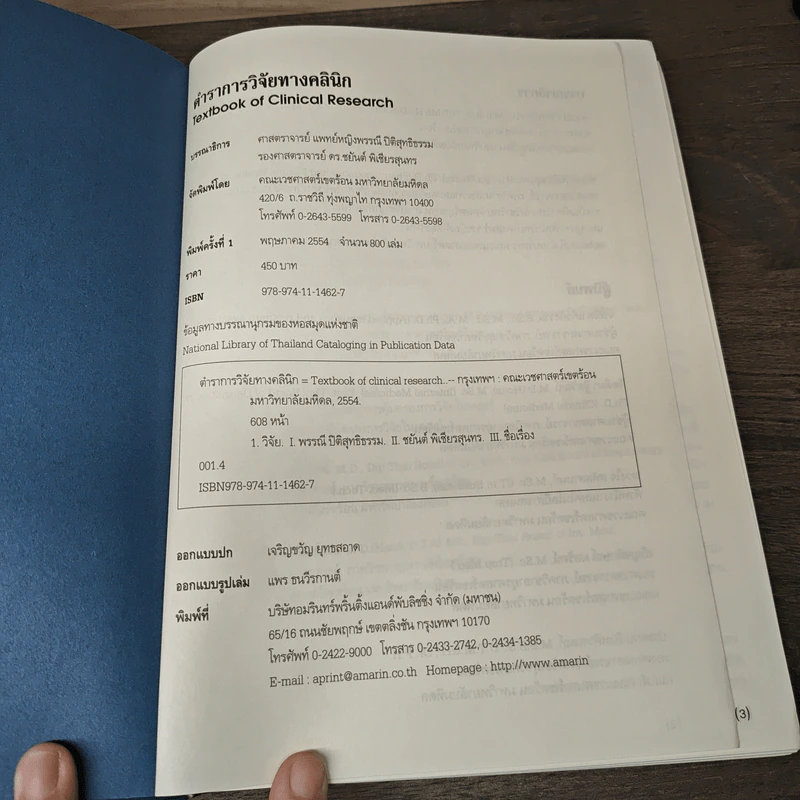 ตำราการวิจัยทางคลินิก
Textbook of Clinical Research
บรรณาธิการ ศาสตราจารย์ แพทย์หญิงพรรณี ปิติสุทธิธรรม
รองศาสตราจารย์ ดร.ชยันต์ พิเชียรสุนทร
จัดพิมพ์โดย คณะเวชศาสตร์เขตร้อน มหาวิทยาลัยมหิดล
420/6 ถ.ราชวิถี ทุ่งพญาไท กรุงเทพฯ 10400
โทรศัพท์ 0-2643-5599 โทรสาร 0-2643-5598
พิมพ์ครั้งที่ 1 พฤษภาคม 2554 จำนวน 800 เล่ม
ราคา 450 บาท
ISBN 978-974-11-1462-7
ข้อมูลทางบรรณานุกรมของหอสมุดแห่งชาติ
National Library of Thailand Cataloging in Publication Data
ตำราการวิจัยทางคลินิก = Textbook of clinical research..-- กรุงเทพฯ : คณะเวชศาสตร์เขตร้อน
มหาวิทยาลัยมหิดล, 2554.
608 หน้า
1. วิจัย. I. พรรณี ปิติสุทธิธรรม. II. ชยันต์ พิเชียรสุนทร. III. ชื่อเรื่อง
001.4
ISBN978-974-11-1462-7
ออกแบบปก เจริญขวัญ ยุทธสอาด
ออกแบบรูปเล่ม แพร ธนวีรกานต์
พิมพ์ที่ บริษัทอมรินทร์พริ้นติ้งแอนด์พับลิชชิ่ง จำกัด (มหาชน)
65/16 ถนนชัยพฤกษ์ เขตตลิ่งชัน กรุงเทพฯ 10170
โทรศัพท์ 0-2422-9000 โทรสาร 0-2433-2742, 0-2434-1385
E-mail : aprint@amarin.co.th Homepage : http://www.amarin
(3)